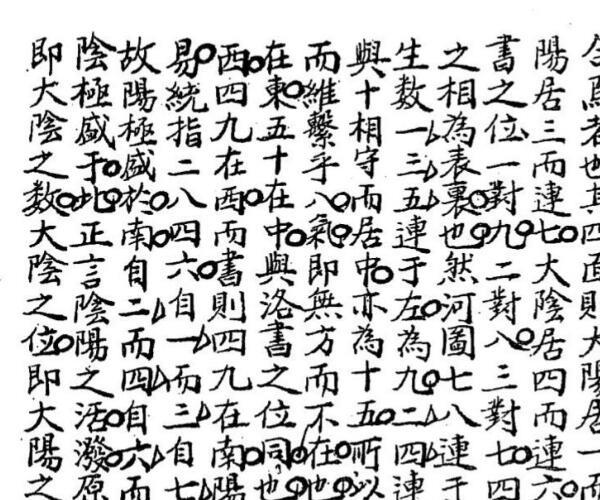 合焉者也其四面則大陽居一而
陽居三而連七大陰居四而連六
書之位一對九二對八三對七四
之相為表裏也然河圖七八連于
生数一三五連于左為九二四連
與十相守而居中亦為十五所以
而維繫乎八氣即無方而不在也
在東五十在中與洛書之位同也
西四九在西而書則四九在南陽
易統指二八四六自一而三自七
故陽極盛於南自二而四自六而
陰極盛于此正言陰陽之活潑原
即大陰之数大陰之位即大陽之